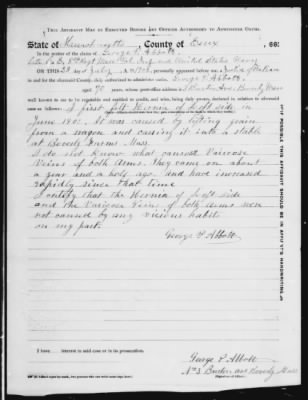 THIS AFFIDAVIT MAY BE EXECUTED BEFORE ANY OFFICER AUTHORIZED TO ADMINISTER OATHS.
State of Massachusetts County of Essex, SS:
In the matter of the claim of George P. Abbott
Late Co B, 8th Regt Mass Vol Inf and United States Navy
ON THIS 23 day of July, A. D. 190, personally appeared before me, a Justice of the Peace
in and for the aforesaid County, duly authorized to administer oaths, George P. Abbott
aged 70 years, whose post-office address is 3 Ave Beverly Mass
well known to me to be reputable and entitled to credit, and who, being duly sworn, declared in relation to aforesaid
case as follows: I first felt Hernia of left side in
June 1905. It was caused by lifting grain
from a wagon and carrying it into a stable
at Beverly Farms Mass.
I do not know what caused Varicose
Veins of both Arms. They came on about
a year and a half ago and have increased
rapidly since that time
I certify that the Hernia of Left Side
and the Varicose Veins of both Arms were
not caused by any vicious habits
on my part.
George P Abbott
Have no interest in said case or in its prosecution.
George P Abbott
No 3 Ave Beverly Mass
IF POSSIBLE THIS AFFIDAVIT SHOULD BE IN AFFIANT'S HANDWRITING.